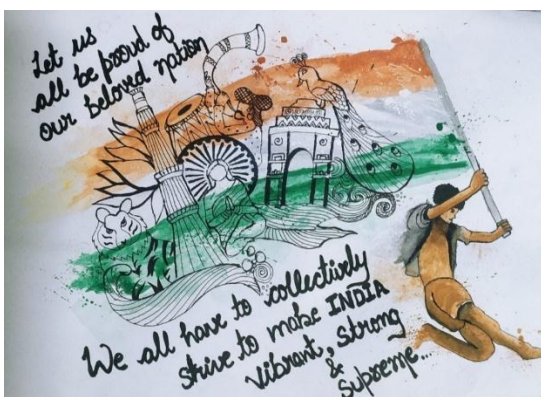 Let us
all be proud of
our beloved nation
We all have to collectively
strive to make INDIA
vibrant, strong
&
supreme...